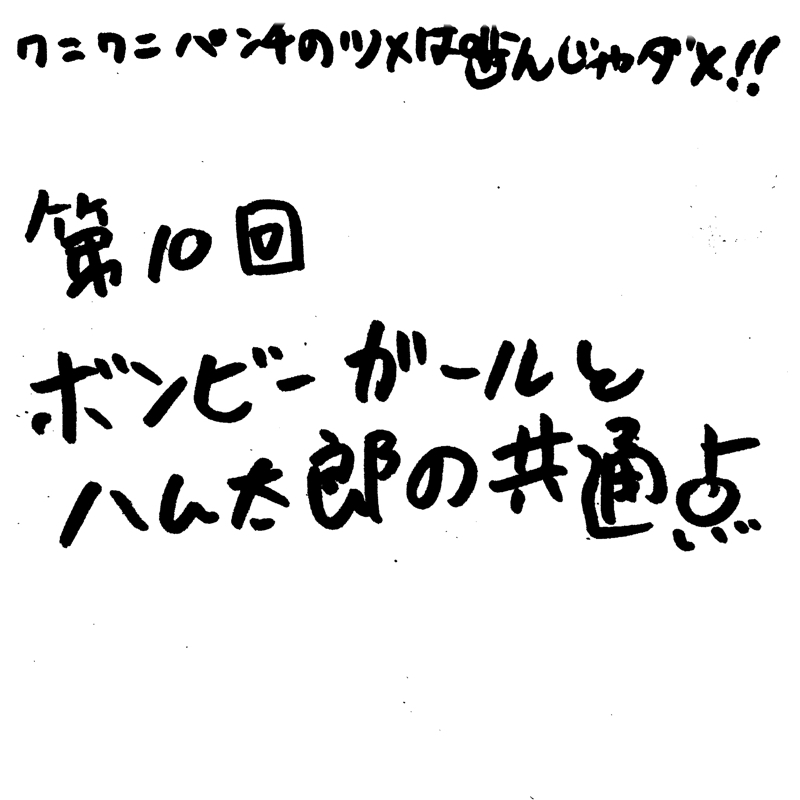 ワニワニパンチのツメは噛んじゃダメ!!
第10回
ボンビーガールと
ハム太郎の共通点